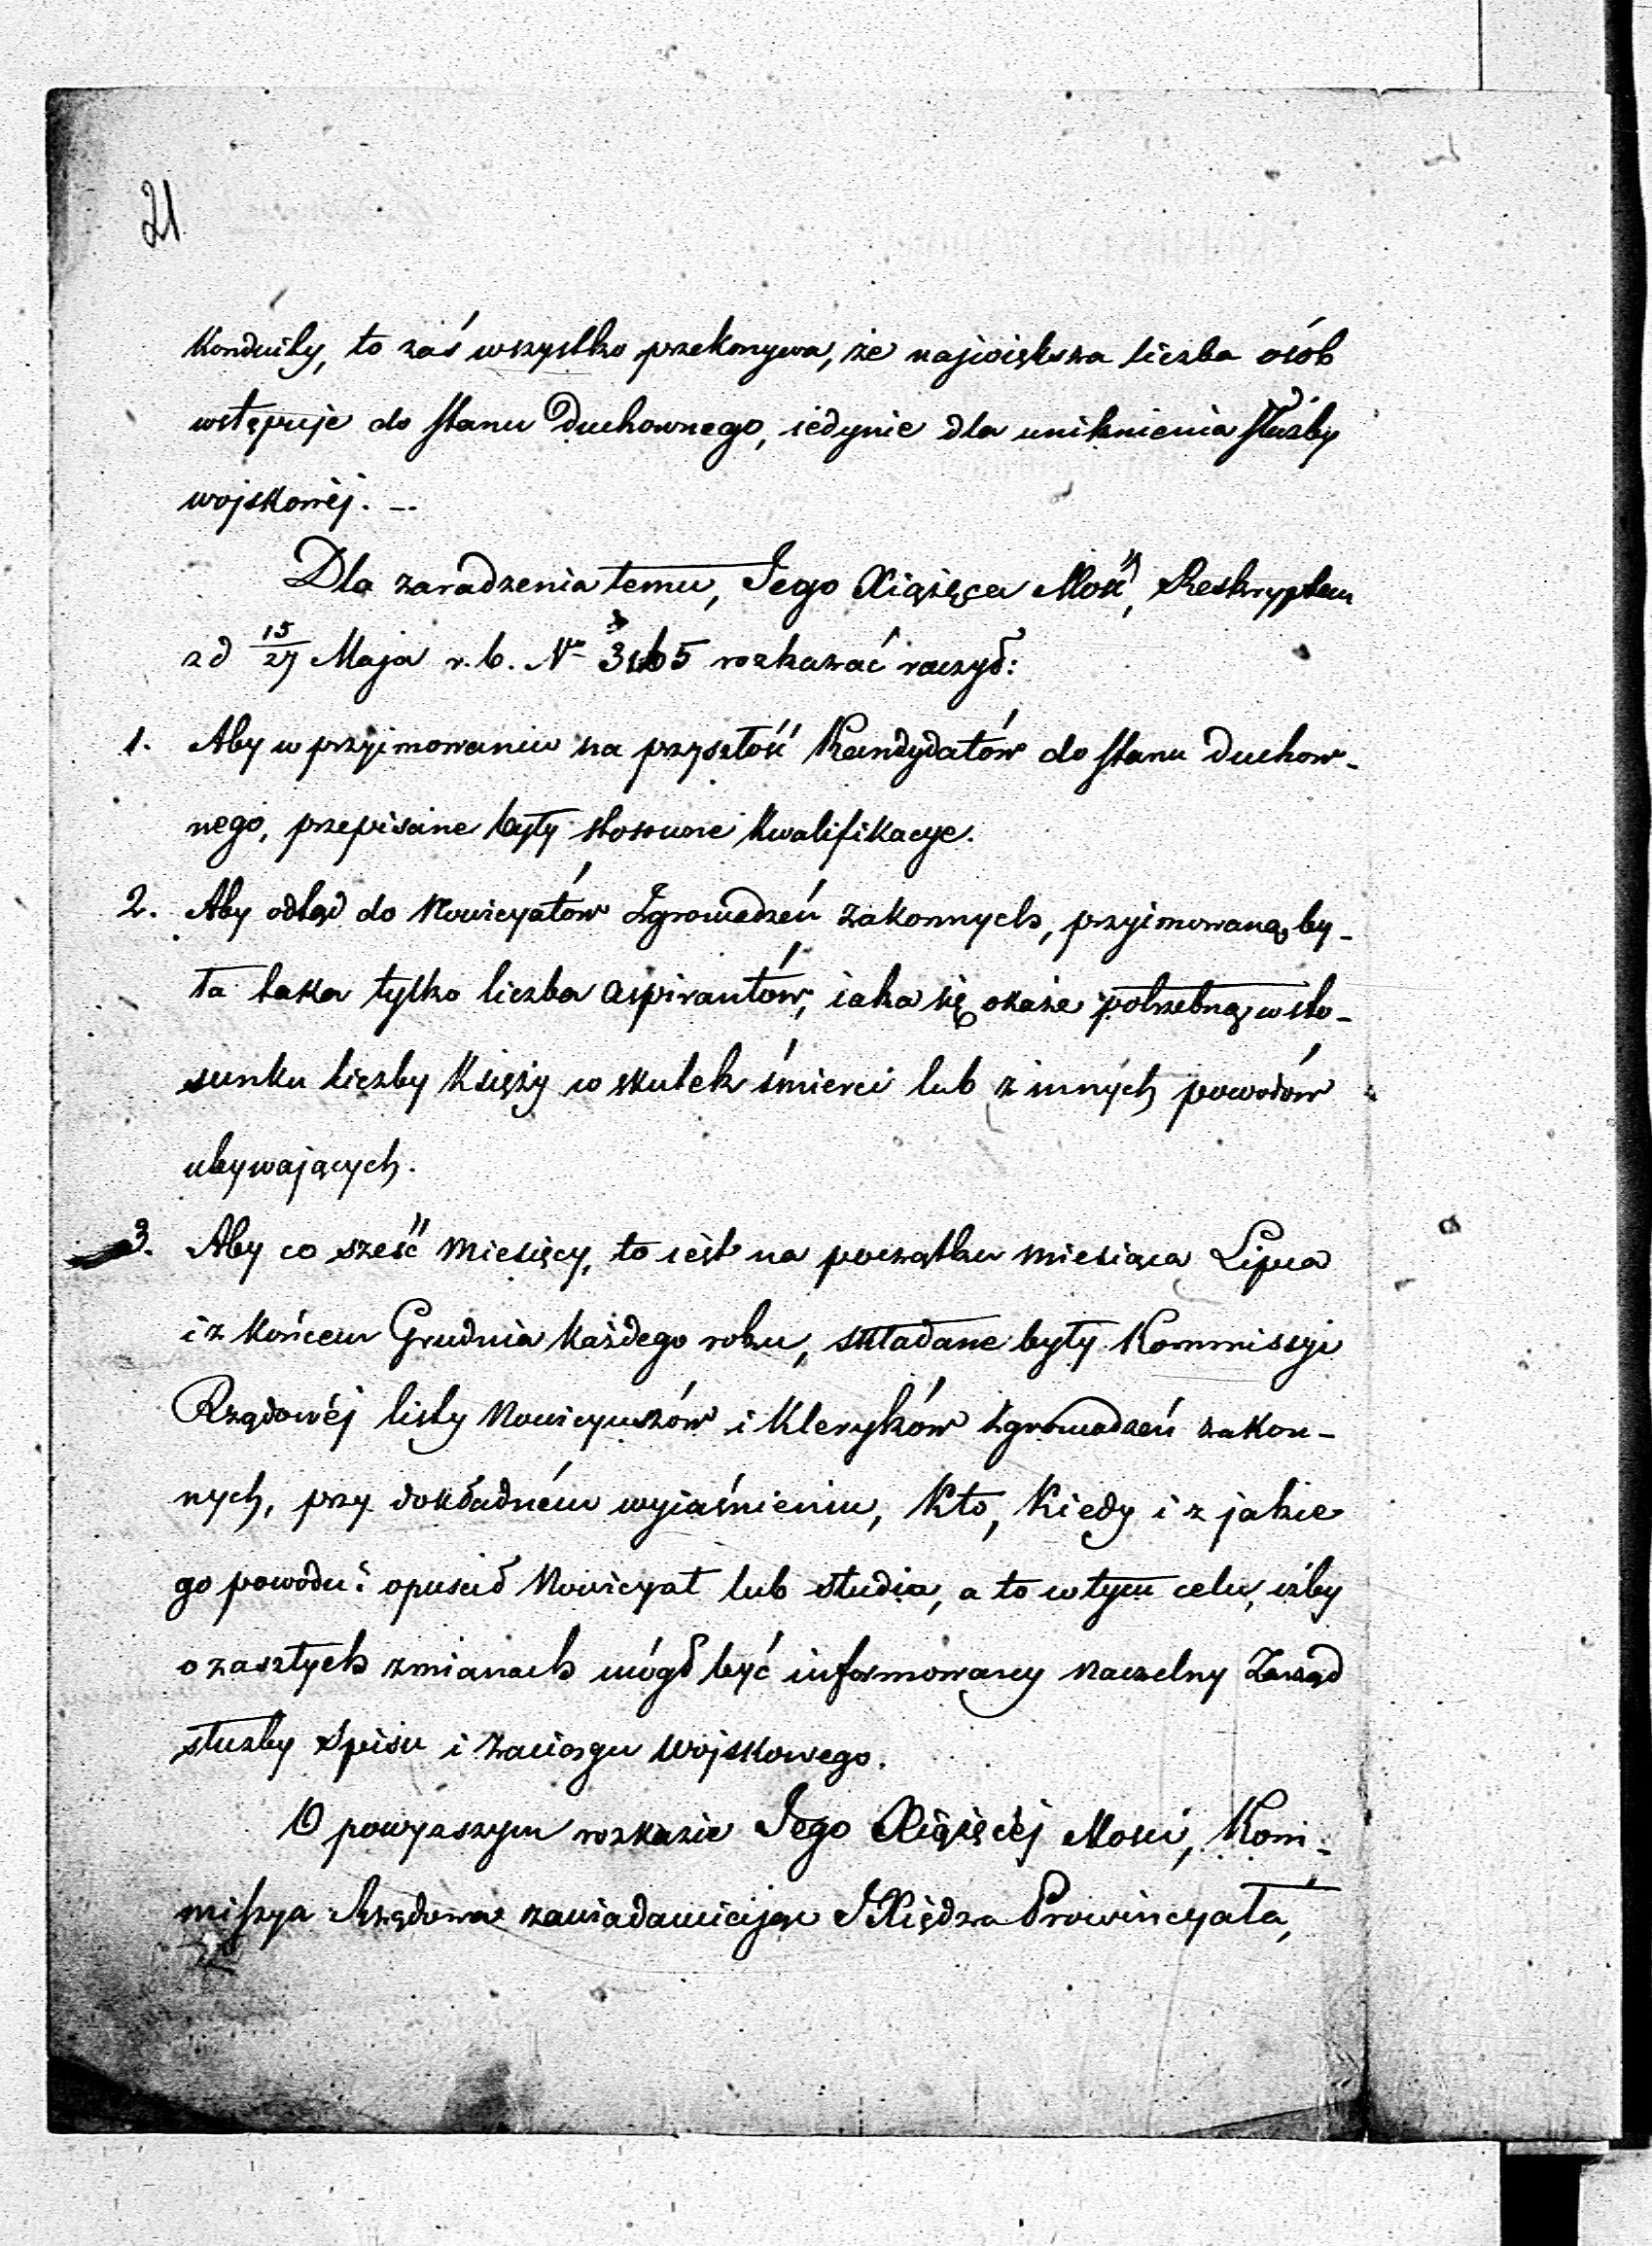 21
Konduity, to zaś wszystko przekonywa, że największa liczba osób
wstępuje do stanu Duchownego, iedynie dla uniknienia służby
wojskowéj. –
Dla zaradzenia temu, Jego Xiążęca Mość, Reskryptem
zd 15/27 Maja r. b. No rozkazać raczył:
1. Aby w przyimowaniu na przyszłość Kandydatów do stanu duchow-
nego, przepisane były stosowne kwalifikacye.
2. Aby odtąd do Nowicyatów Zgromadzeń zakonnych, przyimowaną by-
ła taka tylko liczba aspirantów, iaka się okaże potrzebną w sto-
sunku liczby Księży w skutek śmierci lub z innych powodów
ubywających.
3. Aby co sześć miesięcy, to iest na początku miesiąca Lipca
i z końcem Grudnia każdego roku, składane były Kommissyi
Rządowéj listy Nowicyuszów i Kleryków Zgromadzeń zakon-
nych, przy dokładném wyiaśnieniu, kto, kiedy i z jakie
go powodu opuścił Nowicyat lub studia, a to w tym celu, iżby
o zaszłych zmianach mógł być informowany naczelny Zarząd
służby spisu i zaciągu wojskowego.
O powyższym rozkazie Jego Xiążęcéj Mości, Kom-
missya Rządowa zawiadamiając JXiędza Prowincyała,